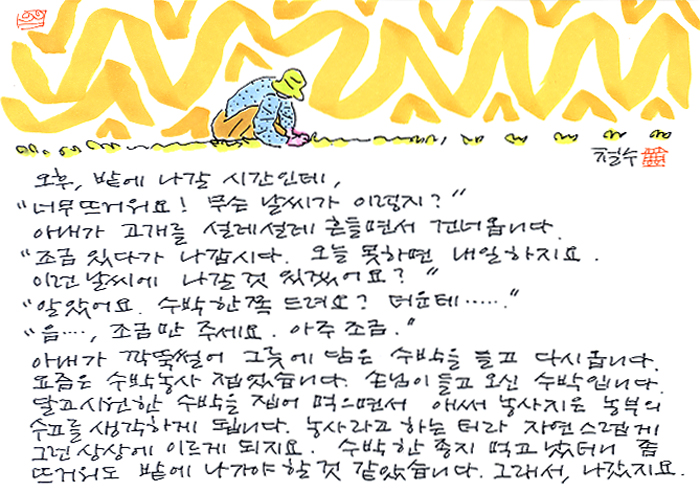 철수
오후, 밭에 나갈 시간인데,
"너무 뜨거워요! 무슨 날씨가 이렇지?"
아내가 고개를 설레설레 흔들면서 건너옵니다.
"조금 있다가 나갑시다. 오늘 못하면 내일하지요.
이런 날씨에 나갈것 있겠어요?"
"알았어요. 수박한쪽 드려요? 더운데……."
"음…, 조금만 주세요. 아주 조금."
아내가 깍뚝썰어 그릇에 담은 수박을 들고 다시옵니다.
요즘은 수박농사 접었습니다. 손님이 들고 오신 수박입니다.
달고시원한 수박을 집어 먹으면서 애써 농사지은 농부의
수고를 생각하게 됩니다. 농사라고 하는 터라 자연스럽게
그런 상상에 이르게 되지요. 수박한 종지 먹고 났더니 좀
뜨거워도 밭에 나가야 할것 같았습니다. 그래서, 나갔지요.